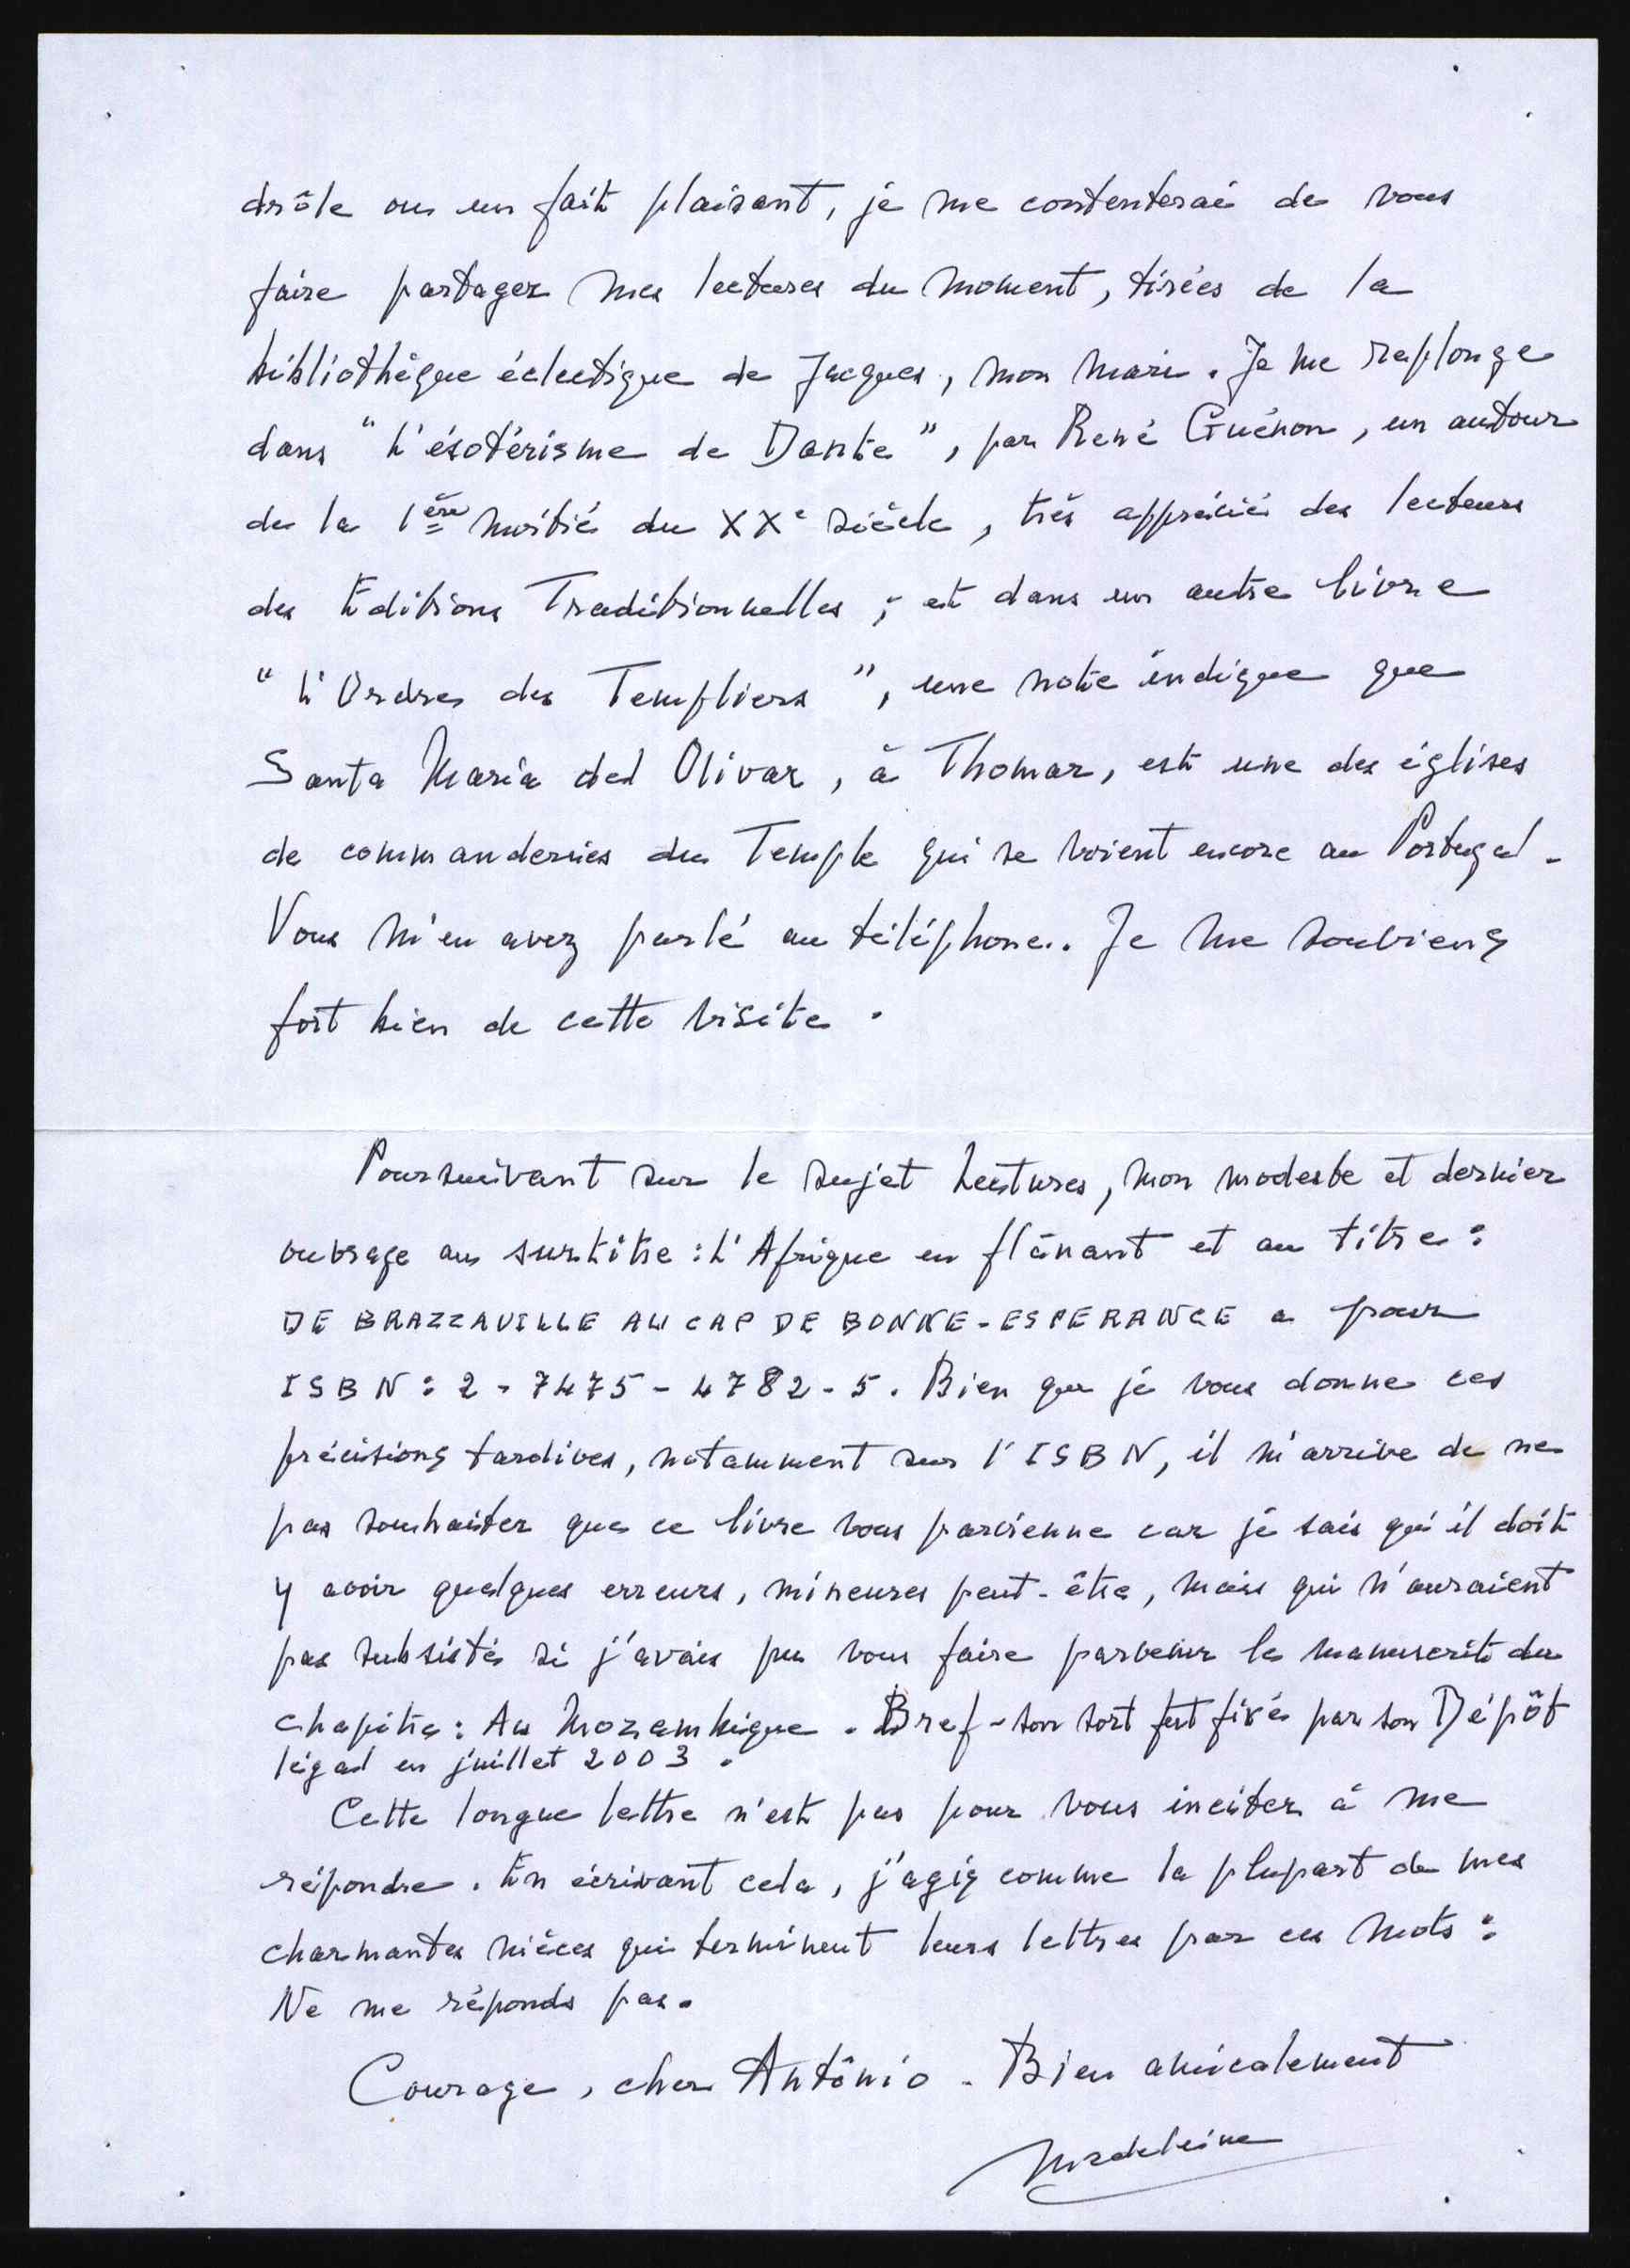 drôle ou un fait plaisant, je me contenterai de vous
faire partager mes lectures du moment, tirées de la
bibliothèque éclectique de Jacques, mon mari. Je me replonge
dans "L'ésotérisme de Dante", par René Guénon, un auteur
de la 1ère moitié du XXe siècle, très apprécié des lecteurs
des Editions Traditionnelles ; et dans un autre livre
"L'Ordres des Templiers", une note indique que
Santa Maria del Olivar, à Thomar, est une des églises
de commanderies du Temple qui se voient encore au Portugal -
Vous m'en avez parlé au téléphone.. Je me souviens
fort bien de cette visite .
Poursuivant sur le sujet Lectures, mon modeste et dernier
ouvrage au surtitre : L'Afrique en flânant et au titre :
DE BRAZZAVILLE AU CAP DE BONNE-ESPERANCE a pour
ISBN : 2-7475-4782-5. Bien que je vous donne ces
précisions tardives, notamment sur l'ISBN, il m'arrive de ne
pas souhaiter que ce livre vous parvienne car je sais qu'il doit
y avoir quelques erreurs, mineures peut-être, mais qui n'auraient
pas subsisté si j'avais pu vous faire parvenir le manuscrit du
chapitre : Au Mozambique . Bref - son sort fut fixé par son Dépôt
légal en juillet 2003 .
Cette longue lettre n'est pas pour vous inciter à me
répondre. En écrivant cela, j'agis comme la plupart de mes
charmantes nièces qui terminent leurs lettres par ces mots :
Ne me réponds pas.
Courage, cher António - Bien amicalement
Madeleine